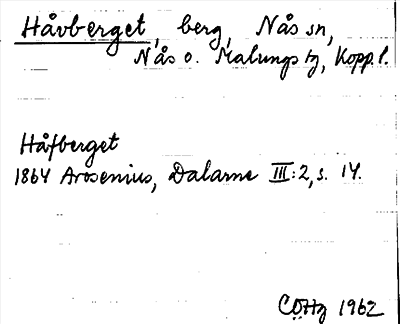 Håvberget, berg, Nås sn,
Nås o. Malungs tg, Kopp. l.
Håfberget
1864 Arosenius, Dalarne III:2, s. 14.
1962